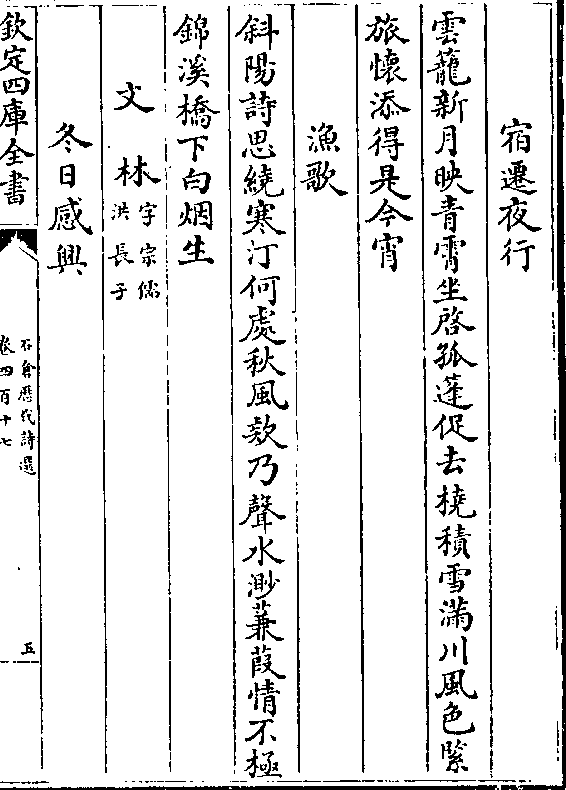 宿遷夜行
雲籠新月映青霄坐啓孤蓬促去橈積雪滿川風色緊
旅懷添得是今宵
漁歌
斜陽詩思繞寒汀何處秋風欸乃聲水渺蒹葭情不極
錦溪橋下白烟生
文林字宗儒
洪長子
冬日感興
欽定四庫全書
石倉歷代詩選
卷四百十七
五